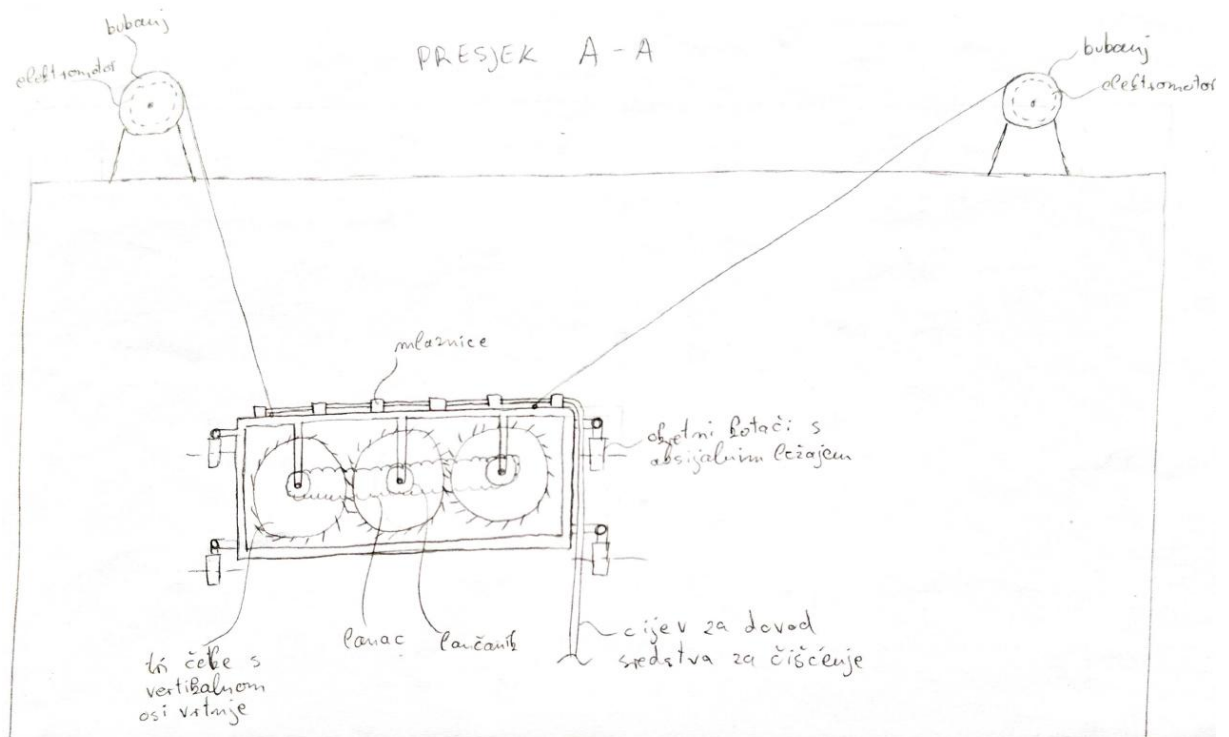 bubanj
elektromotor
PRESJEK A-A
bubanj
elektromotor
mlaznice
okretni kotači s
aksijalnim ležajem
cijev za dovod
sredstva za čišćenje
lanac
lančanik
tri četke s
vertikalnom
osi vrtnje